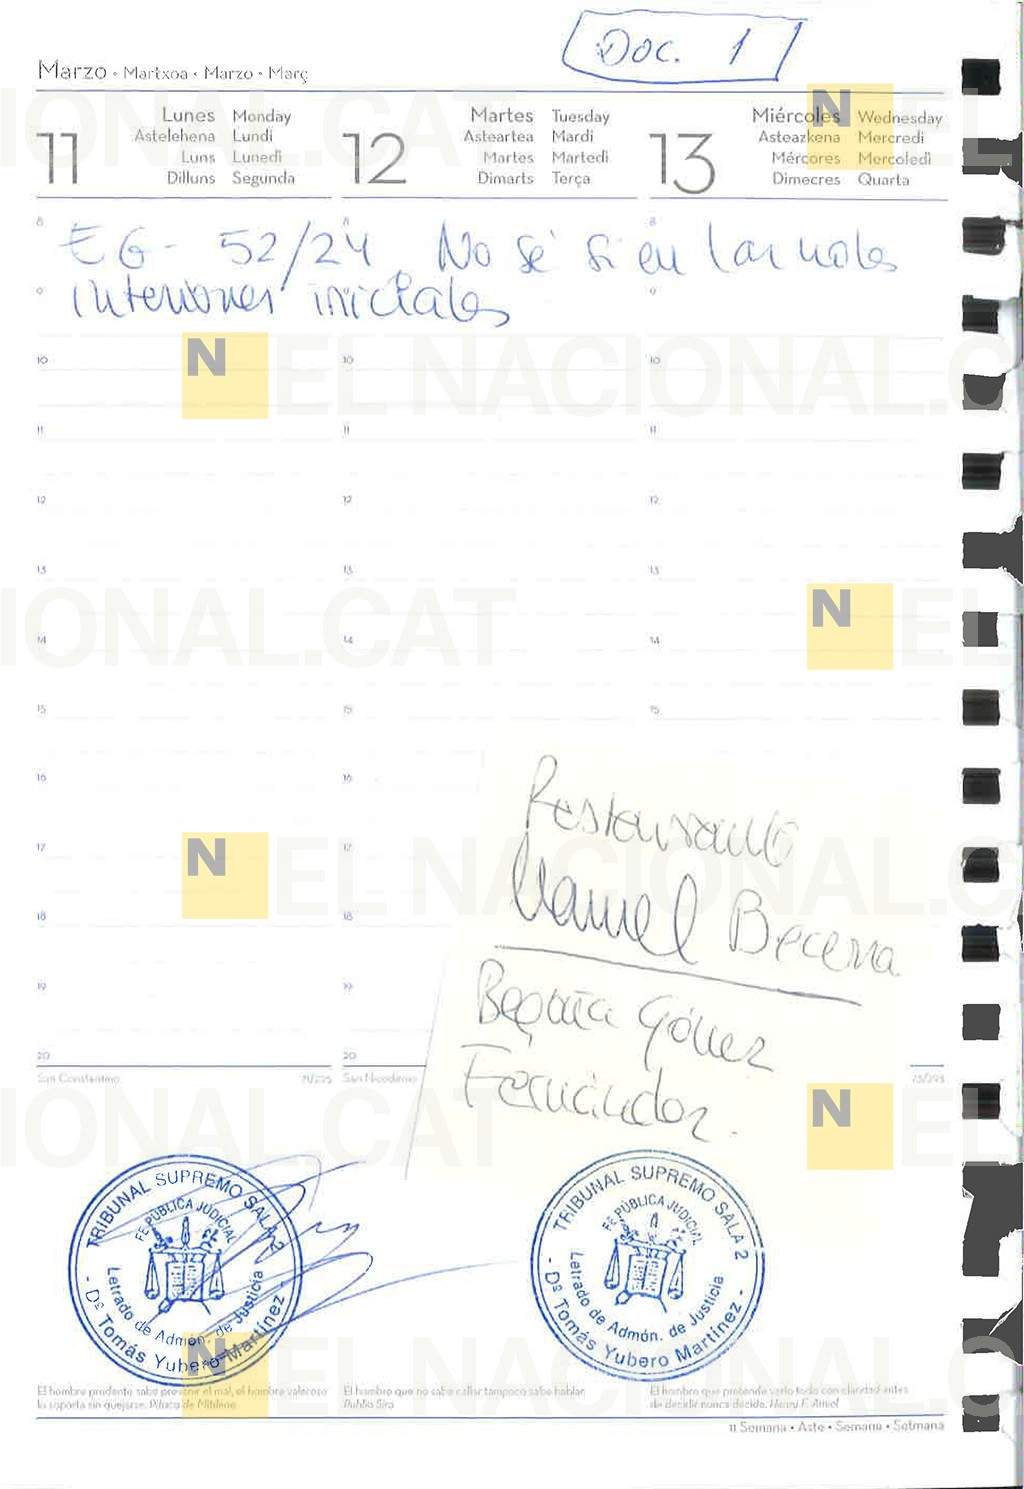 Doc. 1
Marzo • Martxoa • Marzo • Març
11
Lunes Monday
Astelehena Lundi
Luns Lunedì
Dilluns Segunda
12
Martes Tuesday
Asteartea Mardi
Martes Martedì
Dimarts Terça
13
Miércoles Wednesday
Asteazkena Mercredi
Mércores Mercoledì
Dimecres Quarta
8 8 8
EG - 52/24. No sé si en las notas
9 9
interiores iniciales
10 10 10
11 11 11
12 12 12
13 13 13
14 14 14
15 15 15
16 16
17 17
18 18
19 19
20 20
Restaurante
Manuel Becerra
Begoña Gómez
Fernández.
San Constantino 71/295 San Nicodemo 73/293
TRIBUNAL SUPREMO SALA 2
FE PÚBLICA JUDICIAL
Letrado de Admón. de Justicia
- Dº Tomás Yubero Martínez -
TRIBUNAL SUPREMO SALA 2
FE PÚBLICA JUDICIAL
Letrado de Admón. de Justicia
- Dº Tomás Yubero Martínez -
El hombre prudente sabe prevenir el mal, el hombre valeroso
lo soporta sin quejarse. Pítaco de Mitilene
El hombre que no sabe callar tampoco sabe hablar.
Publio Siro
El hombre que pretende verlo todo con claridad antes
de decidir nunca decide. Henry F. Amiel
11 Semana • Aste • Semana • Setmana
N EL NACIONAL.CAT